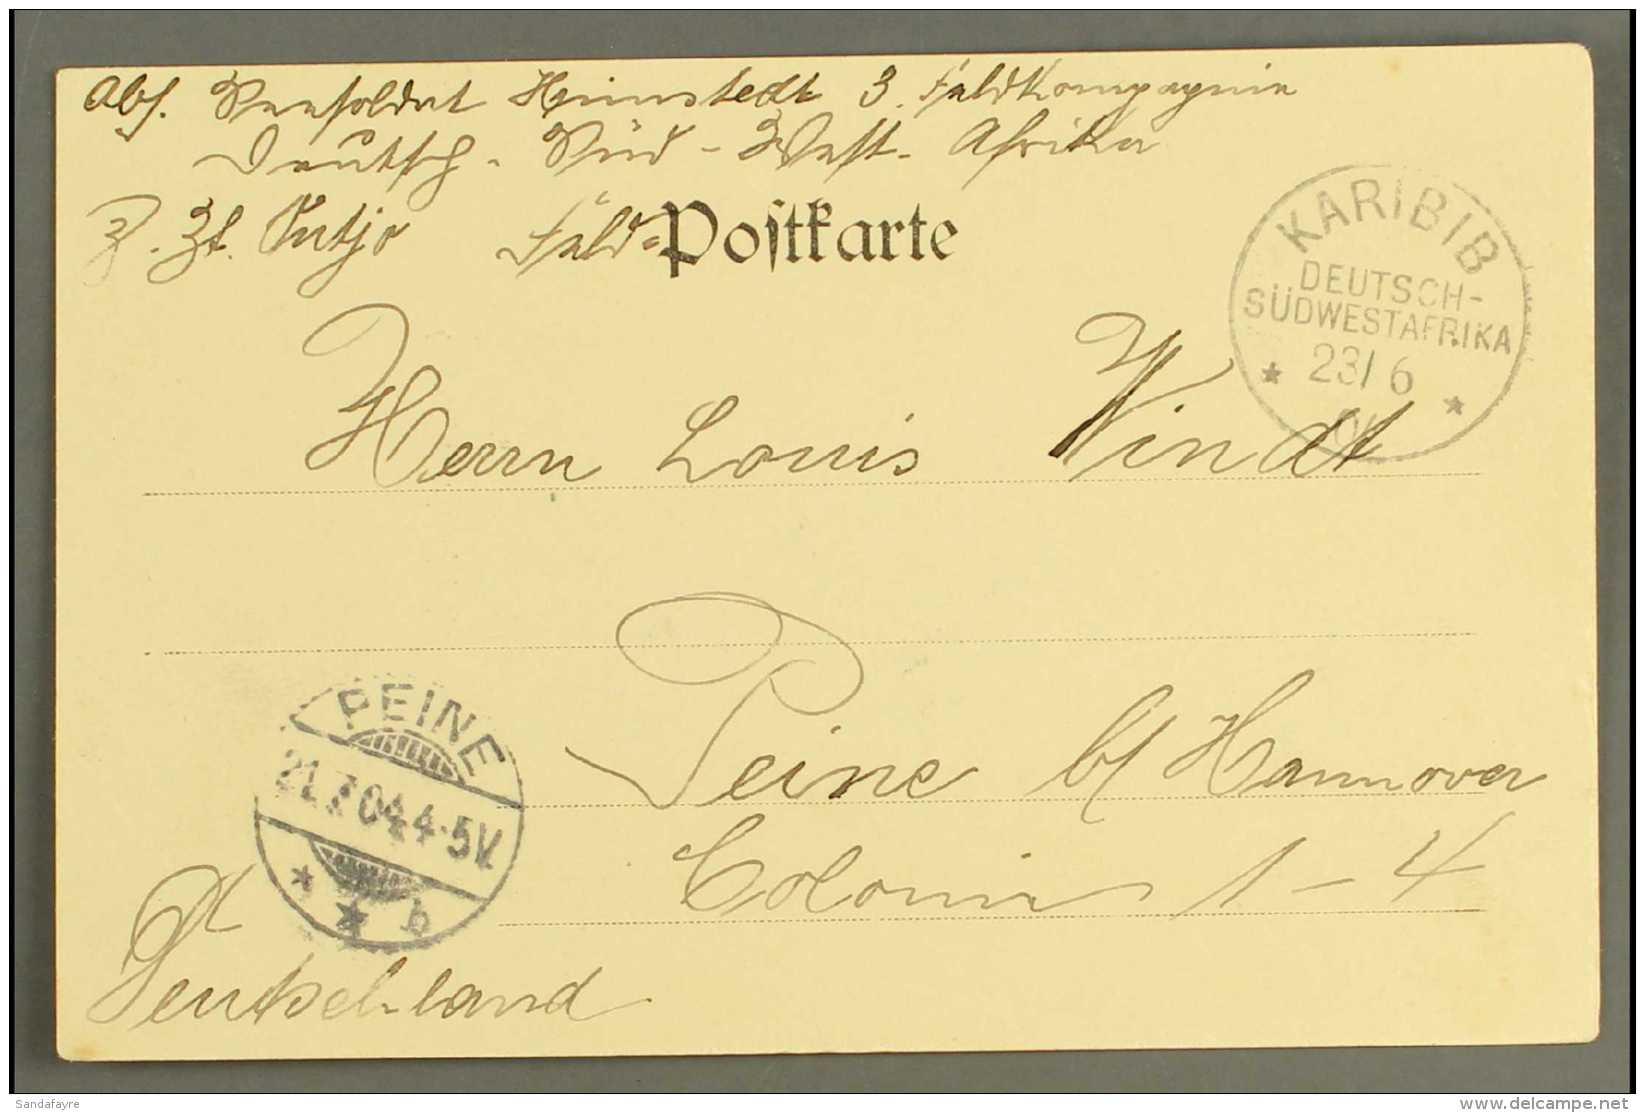 Abs. Seesoldat Heimstedt 3. Feldkompagnie
Deutsch-Süd-West-Afrika
Z. Zt. Outjo Feld-Postkarte
KARIBIB
DEUTSCH-
SÜDWESTAFRIKA
23/6
Herrn Louis Windt
PEINE
21.7.04.4-5V.
b
Peine b/ Hannover
Colonie 1-4
Deutschland
Sandafayre
delcampe.net